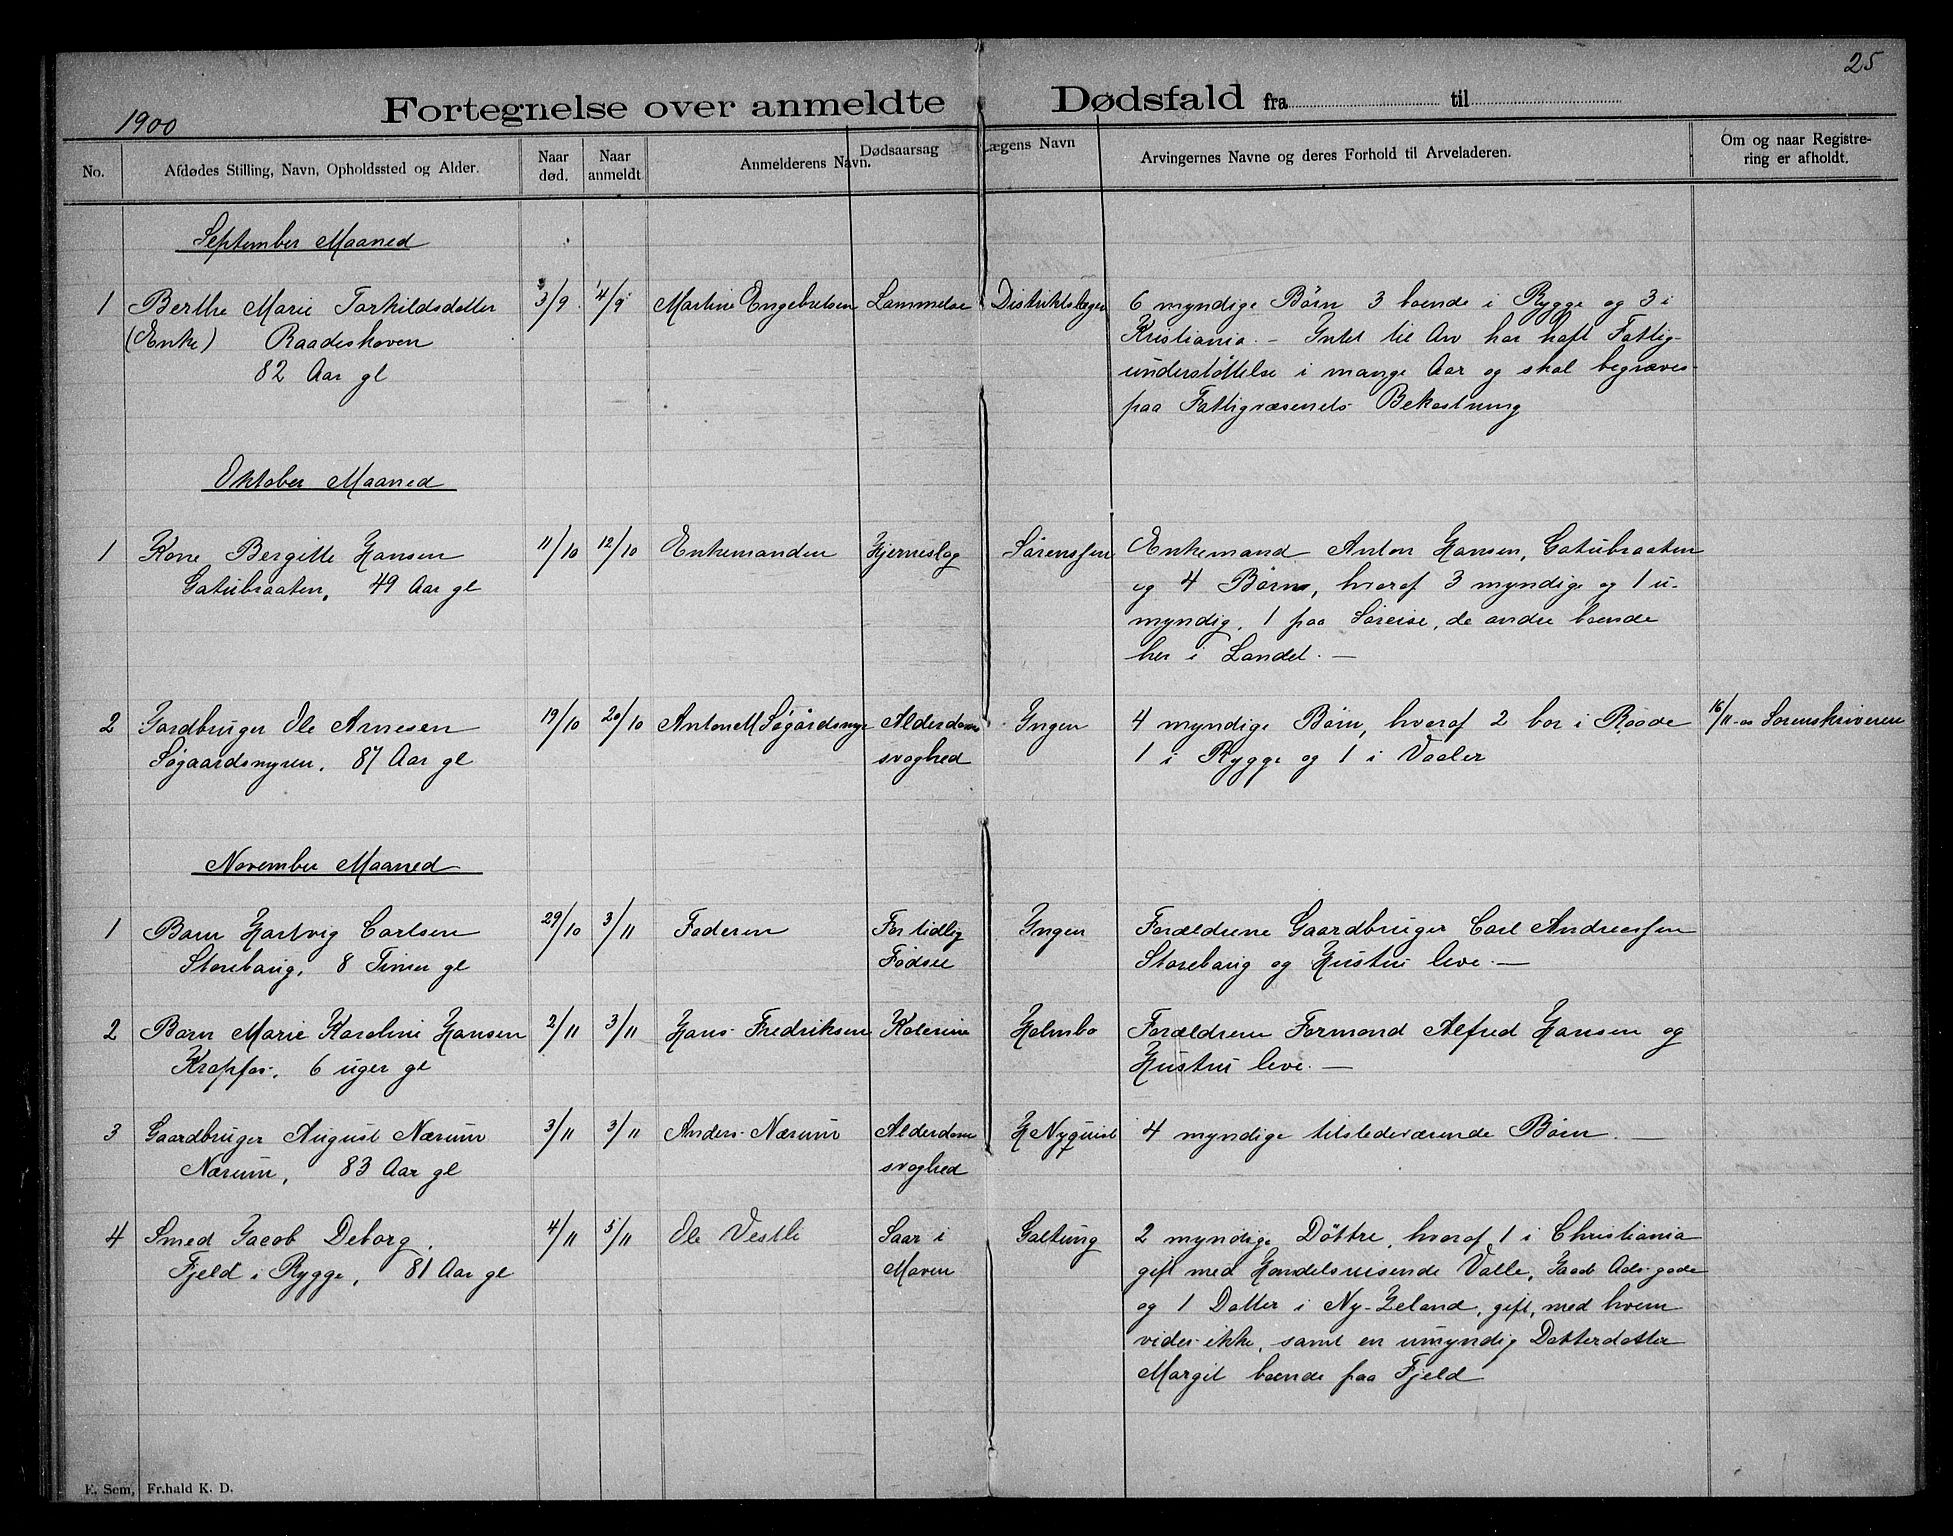 25
1900
Fortegnelse over anmeldte Dødsfald fra til
No.
Afdødes Stilling, Navn, Opholdssted og Alder.
Naar død.
Naar anmeldt
Anmelderens Navn.
Dødsaarsag
Lægens Navn
Arvingernes Navne og deres Forhold til Arveladeren.
Om og naar Registre-
ring er afholdt.
September Maaned
1 Berthe Marie Torkildsdatter 3/9 4/9 Martine Engebretsen Lammelse Distriktslægen 6 myndige Børn 3 boende i Rygge og 3 i
(Enke) Raadeskoven Kristiania. - Intet til Arv har haft Fattig-
82 Aar gl understøttelse i mange Aar og skal begraves
paa Fattigvæsenets Bekostning
Oktober Maaned
1 Kone Bergitte Hansen 11/10 12/10 Enkemanden Hjerneslag Sørenssen Enkemand Anton Hansen, Gatubraaten
Gatubraaten, 49 Aar gl og 4 Børn, hvoraf 3 myndige og 1 u-
myndig. 1 paa Søreise, de andre boende
her i Landet. -
2 Gardbruger Ole Arnesen 19/10 20/10 Anton M Søgårdsmyr Alderdoms Ingen 4 myndige Børn, hvoraf 2 bor i Raade 16/11-00 Sorenskriveren
Søgaardsmyren, 87 Aar gl svaghed 1 i Rygge og 1 i Vaaler
November Maaned
1 Barn Hartvig Carlsen 29/10 3/11 Faderen For tidlig Ingen Forældrene Gaardbruger Carl Andreassen
Storebaug, 8 Timer gl Fødsel Storebaug og Hustru leve. -
2 Barn Marie Karoline Hansen 2/11 3/11 Hans Fredriksen Kolerine Holmbo Forældrene Formand Alfred Hansen og
Krapfos, 6 uger gl Hustru leve. -
3 Gaardbruger August Nærum 3/11 3/11 Anders Nærum Alderdoms H Nyquist 4 myndige tilstedeværende Børn. -
Nærum, 83 Aar gl svaghed
4 Smed Jacob Deborg, 4/11 5/11 Ole Vestli Saar i Galtung 2 myndige Døttre, hvoraf 1 i Christiania
Fjeld i Rygge, 81 Aar gl Maven gift med Handelsreisende Valle, gade
og 1 Datter i Ny-Zeland, gift, med hvem
vides ikke, samt en umyndig Datterdatter
Margit boende paa Fjeld
E. Sem, Fr.hald K. D.